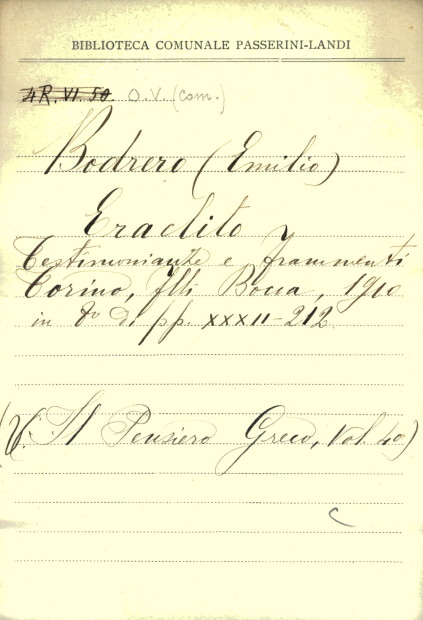 BIBLIOTECA COMUNALE PASSERINI-LANDI
4R. VI. 50 O. V. (com.)
Bodrero (Emilio)
Eraclito
Testimonianze e frammenti
Torino, Flli Bocca, 1910
in 8º di pp. XXXII-212
(V. Il Pensiero Greco, Vol. 4º)
C